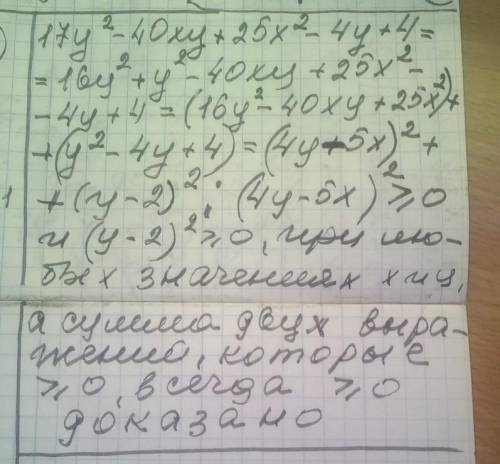 17y² - 40xy + 25x² - 4y + 4 =
= 16y² + y² - 40xy + 25x² -
- 4y + 4 = (16y² - 40xy + 25x²) +
+ (y² - 4y + 4) = (4y - 5x)² +
1 + (y - 2)²; (4y - 5x)² ≥ 0
и (y - 2)² ≥ 0, при лю-
бых значениях x и y,
а сумма двух выра-
жений, которые
≥ 0, всегда ≥ 0
доказано